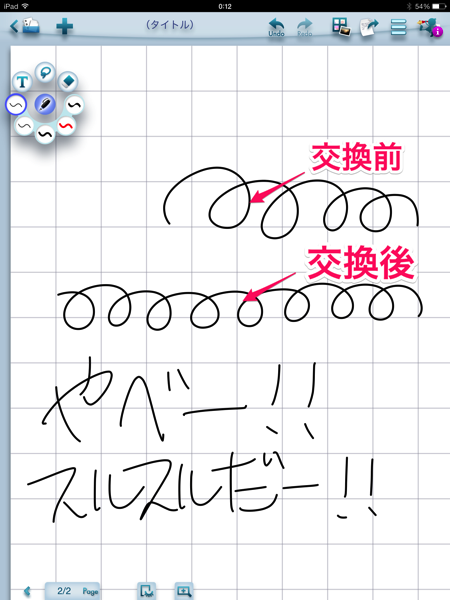 iPad 0:12 54%
(タイトル)
Undo Redo
T
交換前
交換後
やべー!!
スルスルだー!!
2/2 Page